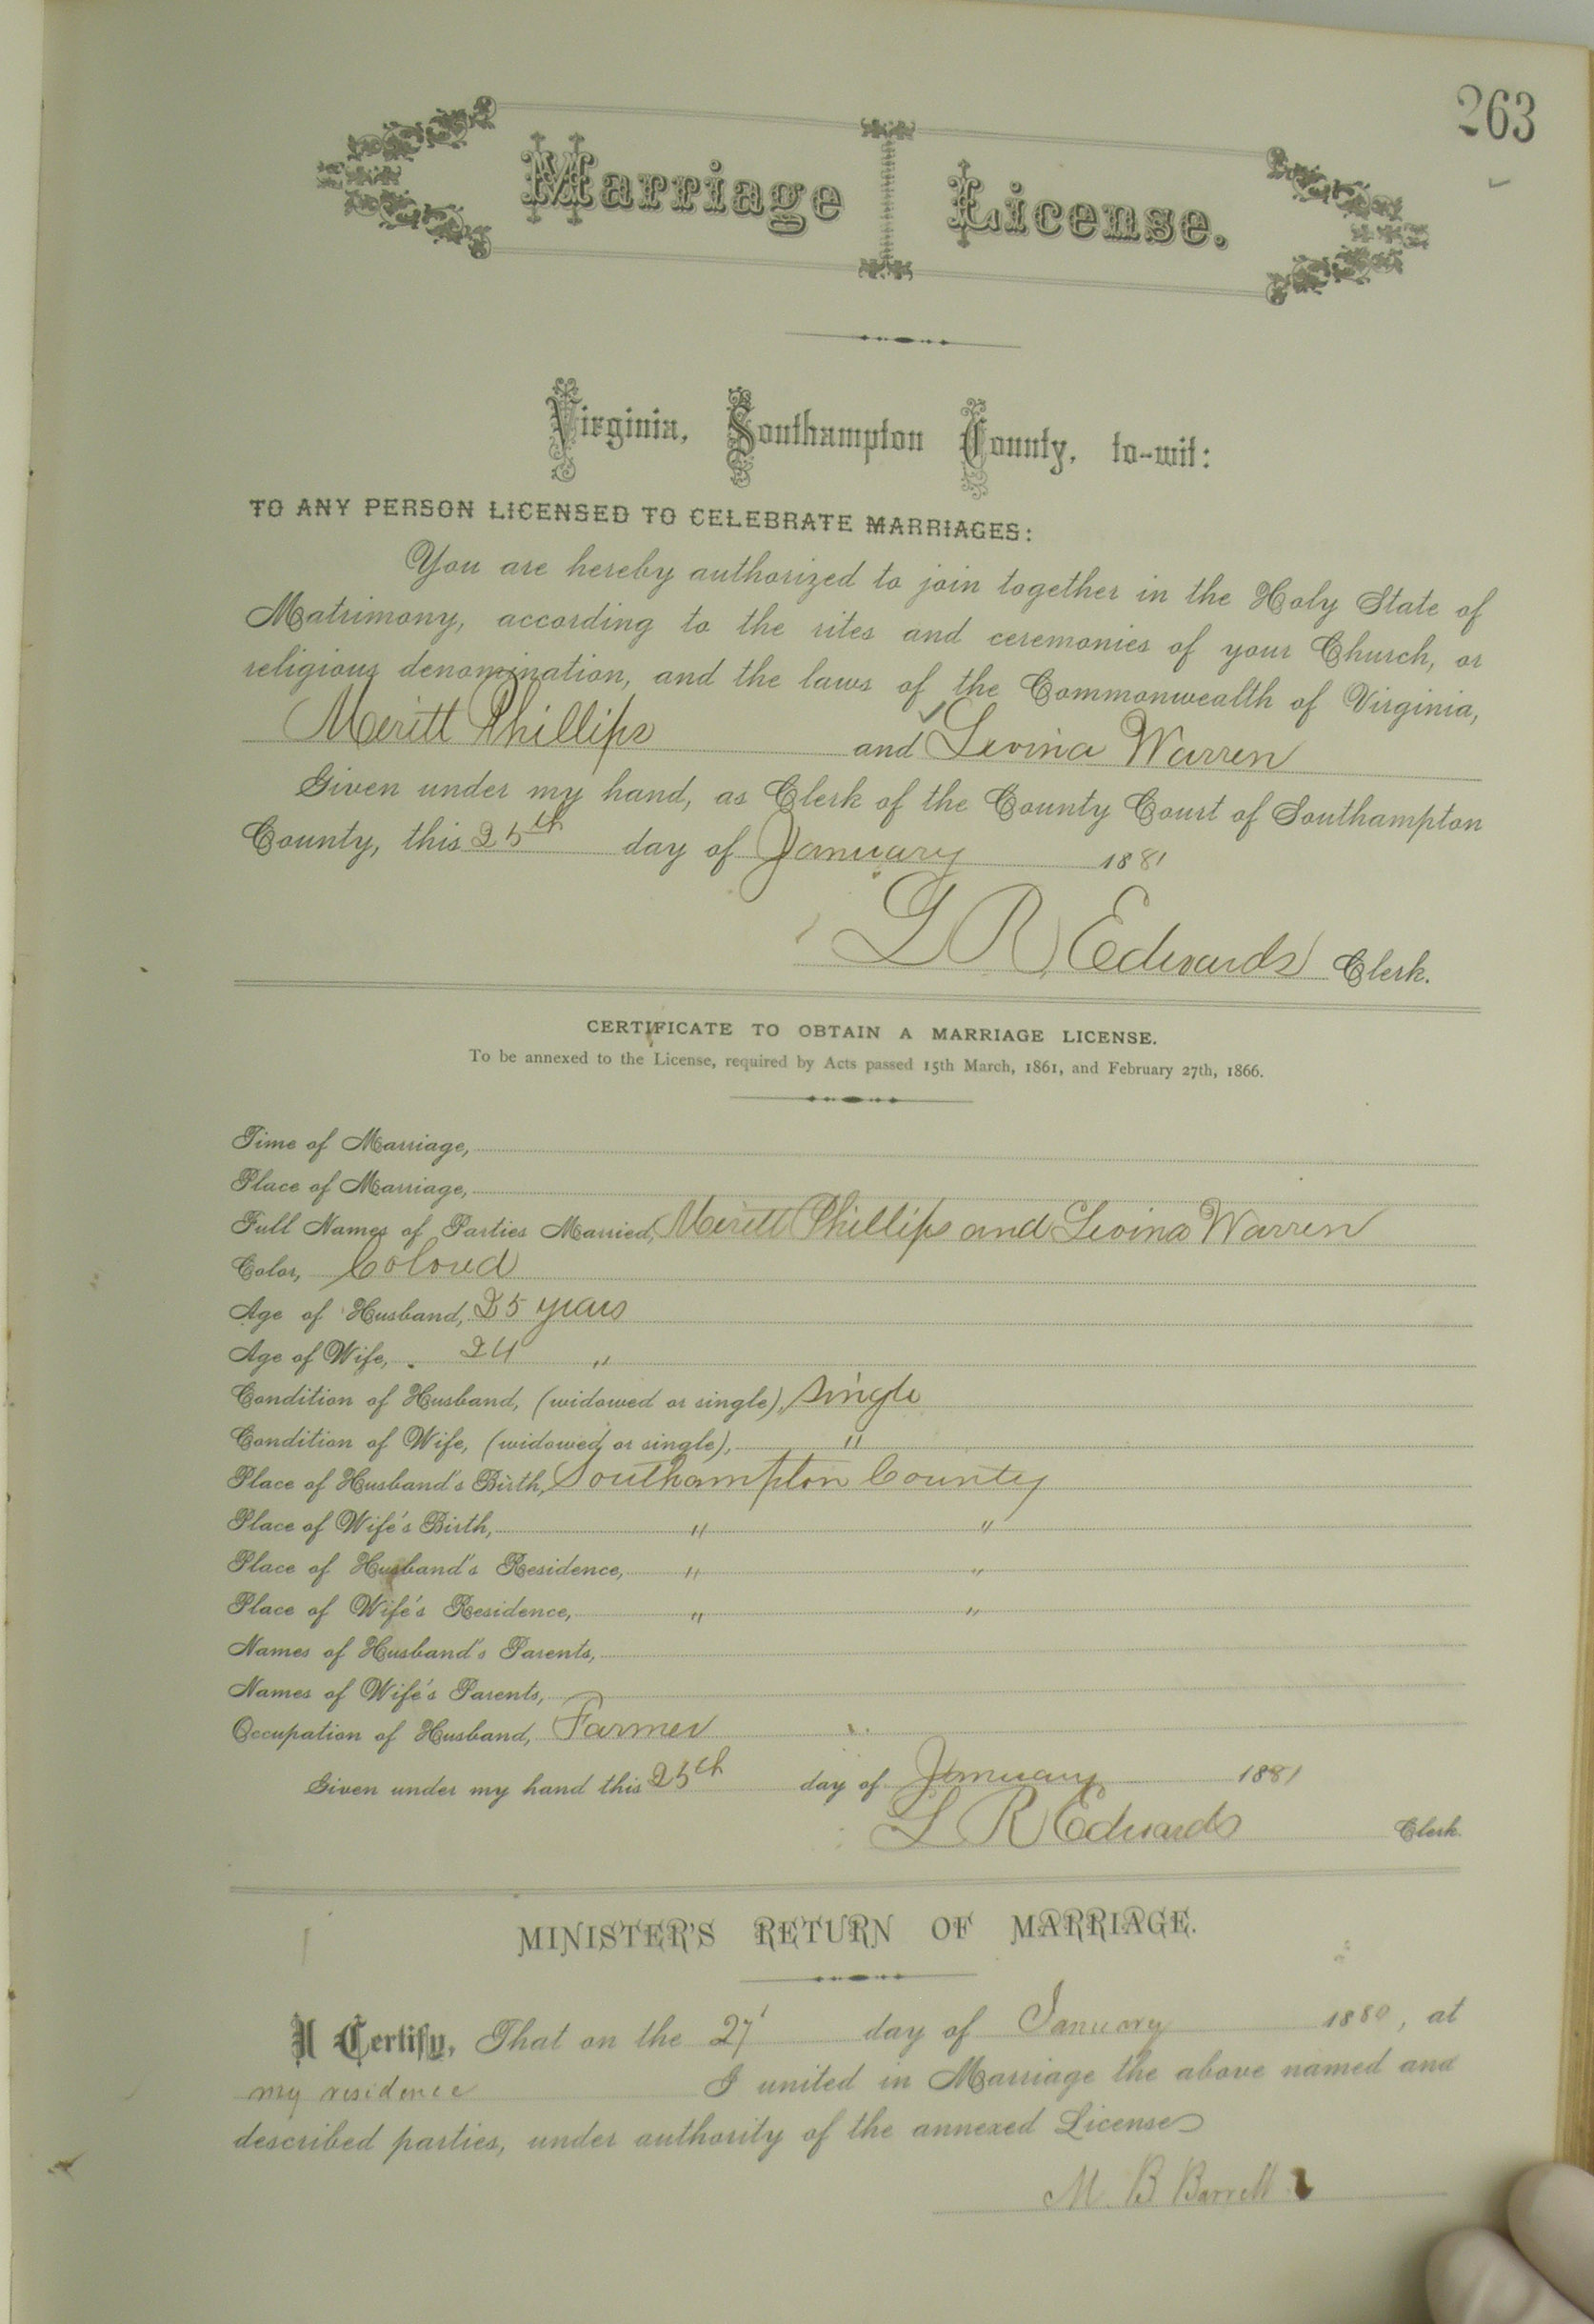 263
Marriage License.
Virginia, Southampton County, to-wit:
TO ANY PERSON LICENSED TO CELEBRATE MARRIAGES:
You are hereby authorized to join together in the Holy State of
Matrimony, according to the rites and ceremonies of your Church, or
religious denomination, and the laws of the Commonwealth of Virginia,
Meritt Phillips and Levina Warren
Given under my hand, as Clerk of the County Court of Southampton
County, this 25th day of January 1881
L R Edwards Clerk.
CERTIFICATE TO OBTAIN A MARRIAGE LICENSE.
To be annexed to the License, required by Acts passed 15th March, 1861, and February 27th, 1866.
Time of Marriage,
Place of Marriage,
Full Names of Parties Married, Meritt Phillips and Levina Warren
Color, Colored
Age of Husband, 25 years
Age of Wife, 24 "
Condition of Husband, (widowed or single), Single
Condition of Wife, (widowed or single), "
Place of Husband's Birth, Southampton County
Place of Wife's Birth, " "
Place of Husband's Residence, " "
Place of Wife's Residence, " "
Names of Husband's Parents,
Names of Wife's Parents,
Occupation of Husband, Farmer
Given under my hand this 25th day of January 1881
L R Edwards Clerk.
MINISTER'S RETURN OF MARRIAGE.
I Certify, That on the 27' day of January 1880, at
my residence I united in Marriage the above named and
described parties, under authority of the annexed License
M. B Barrett